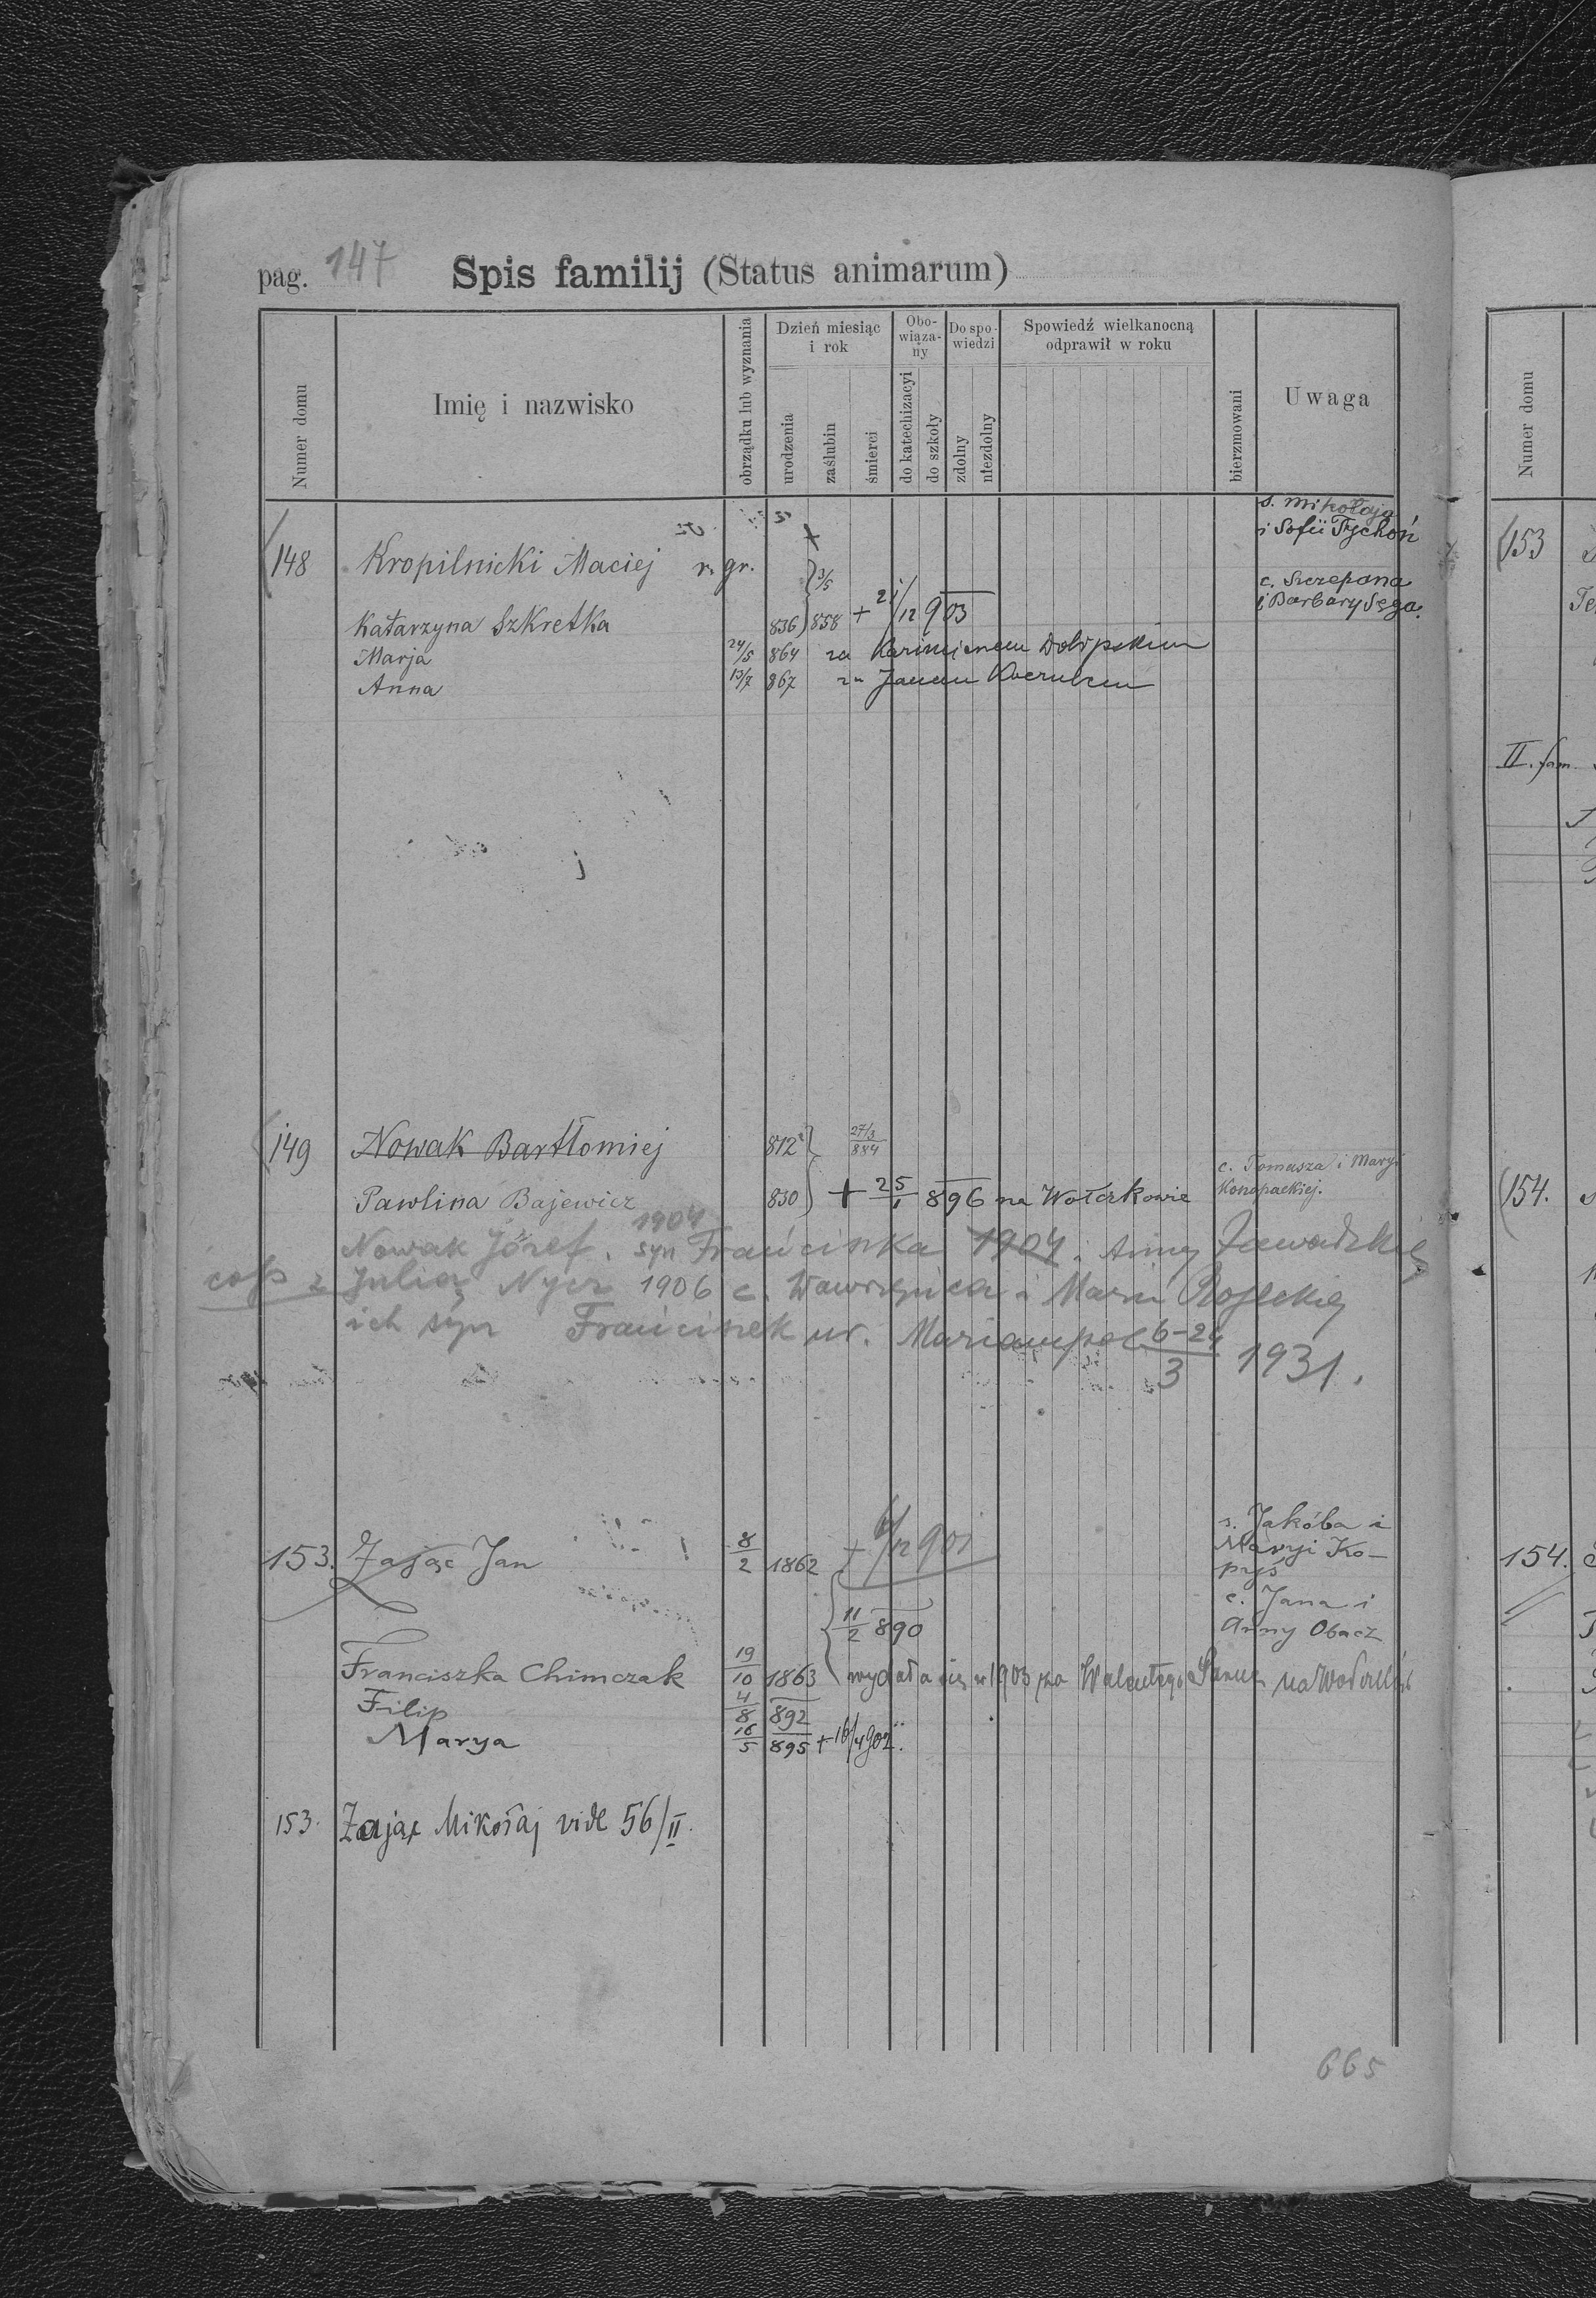 pag. 147 Spis familij (Status animarum)
Numer domu
Imię i nazwisko
obrządku lub wyznania
Dzień miesiąc i rok
urodzenia
zaślubin
śmierci
Obowiązany
do katechizacyi
do szkoły
Do spowiedzi
zdolny
niezdolny
Spowiedź wielkanocną odprawił w roku
bierzmowani
Uwaga
s. Mikołaja
i Sofii Tychoń
148 Kropilnicki Maciej r. gr. +
3/5
c. Szczepana
i Barbary Sęga.
Katarzyna Szkretka 836 858 + 21/12 903
Marja 24/5 864 za
Anna 13/7 867 za Janem
149 Nowak Bartłomiej 812 27/3 884
c. Tomasza i Maryi
Konopackiej.
Pawlina Bajewicz 830 + 25/1 896 na Wołczkowie
1904
Nowak Józef. syn Franciszka 1904 i Anny Zawadzkiej
cop. z Julią Nycz 1906 c. Wawrzyńca i Marii
ich syn Franciszek ur. Mariampol 6-24/3 1931.
s. Jakóba i
Maryi Ko-
pyś
153. Zając Jan 8/2 1862 + 6/12 901
c. Jana i
Anny Obacz
11/2 890
Franciszka Chimczak 19/10 1863 wydała się w 1903 za Walentego
Filip 4/8 892
Marya 16/5 895 + 16/4 902.
153. Zając Mikołaj vide 56/II.
665
Numer domu
153
II. fam.
154.
154.